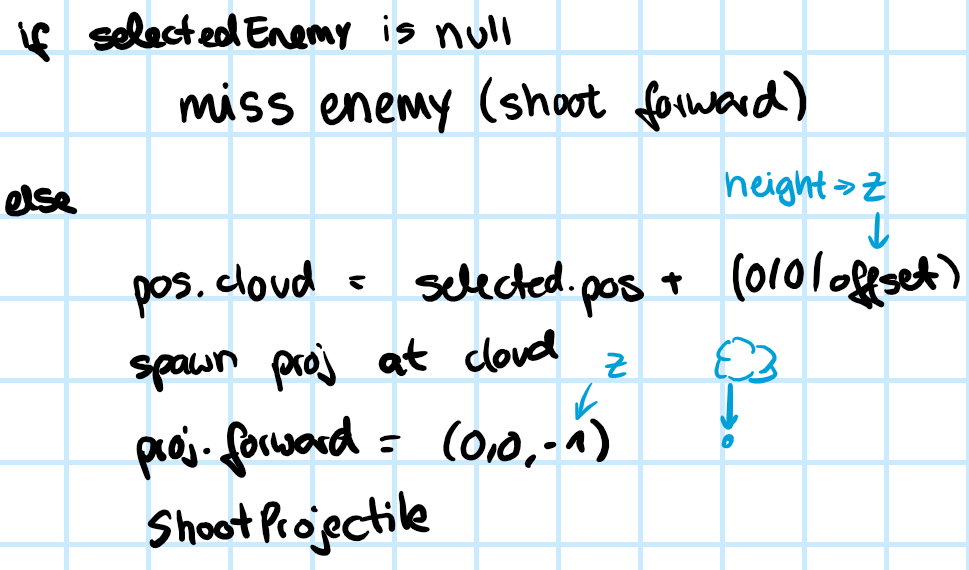 if selectedEnemy is null
miss enemy (shoot forward)
else
height → z
pos.cloud = selected.pos + (0/0/offset)
spawn proj at cloud
z
proj.forward = (0,0,-1)
ShootProjectile